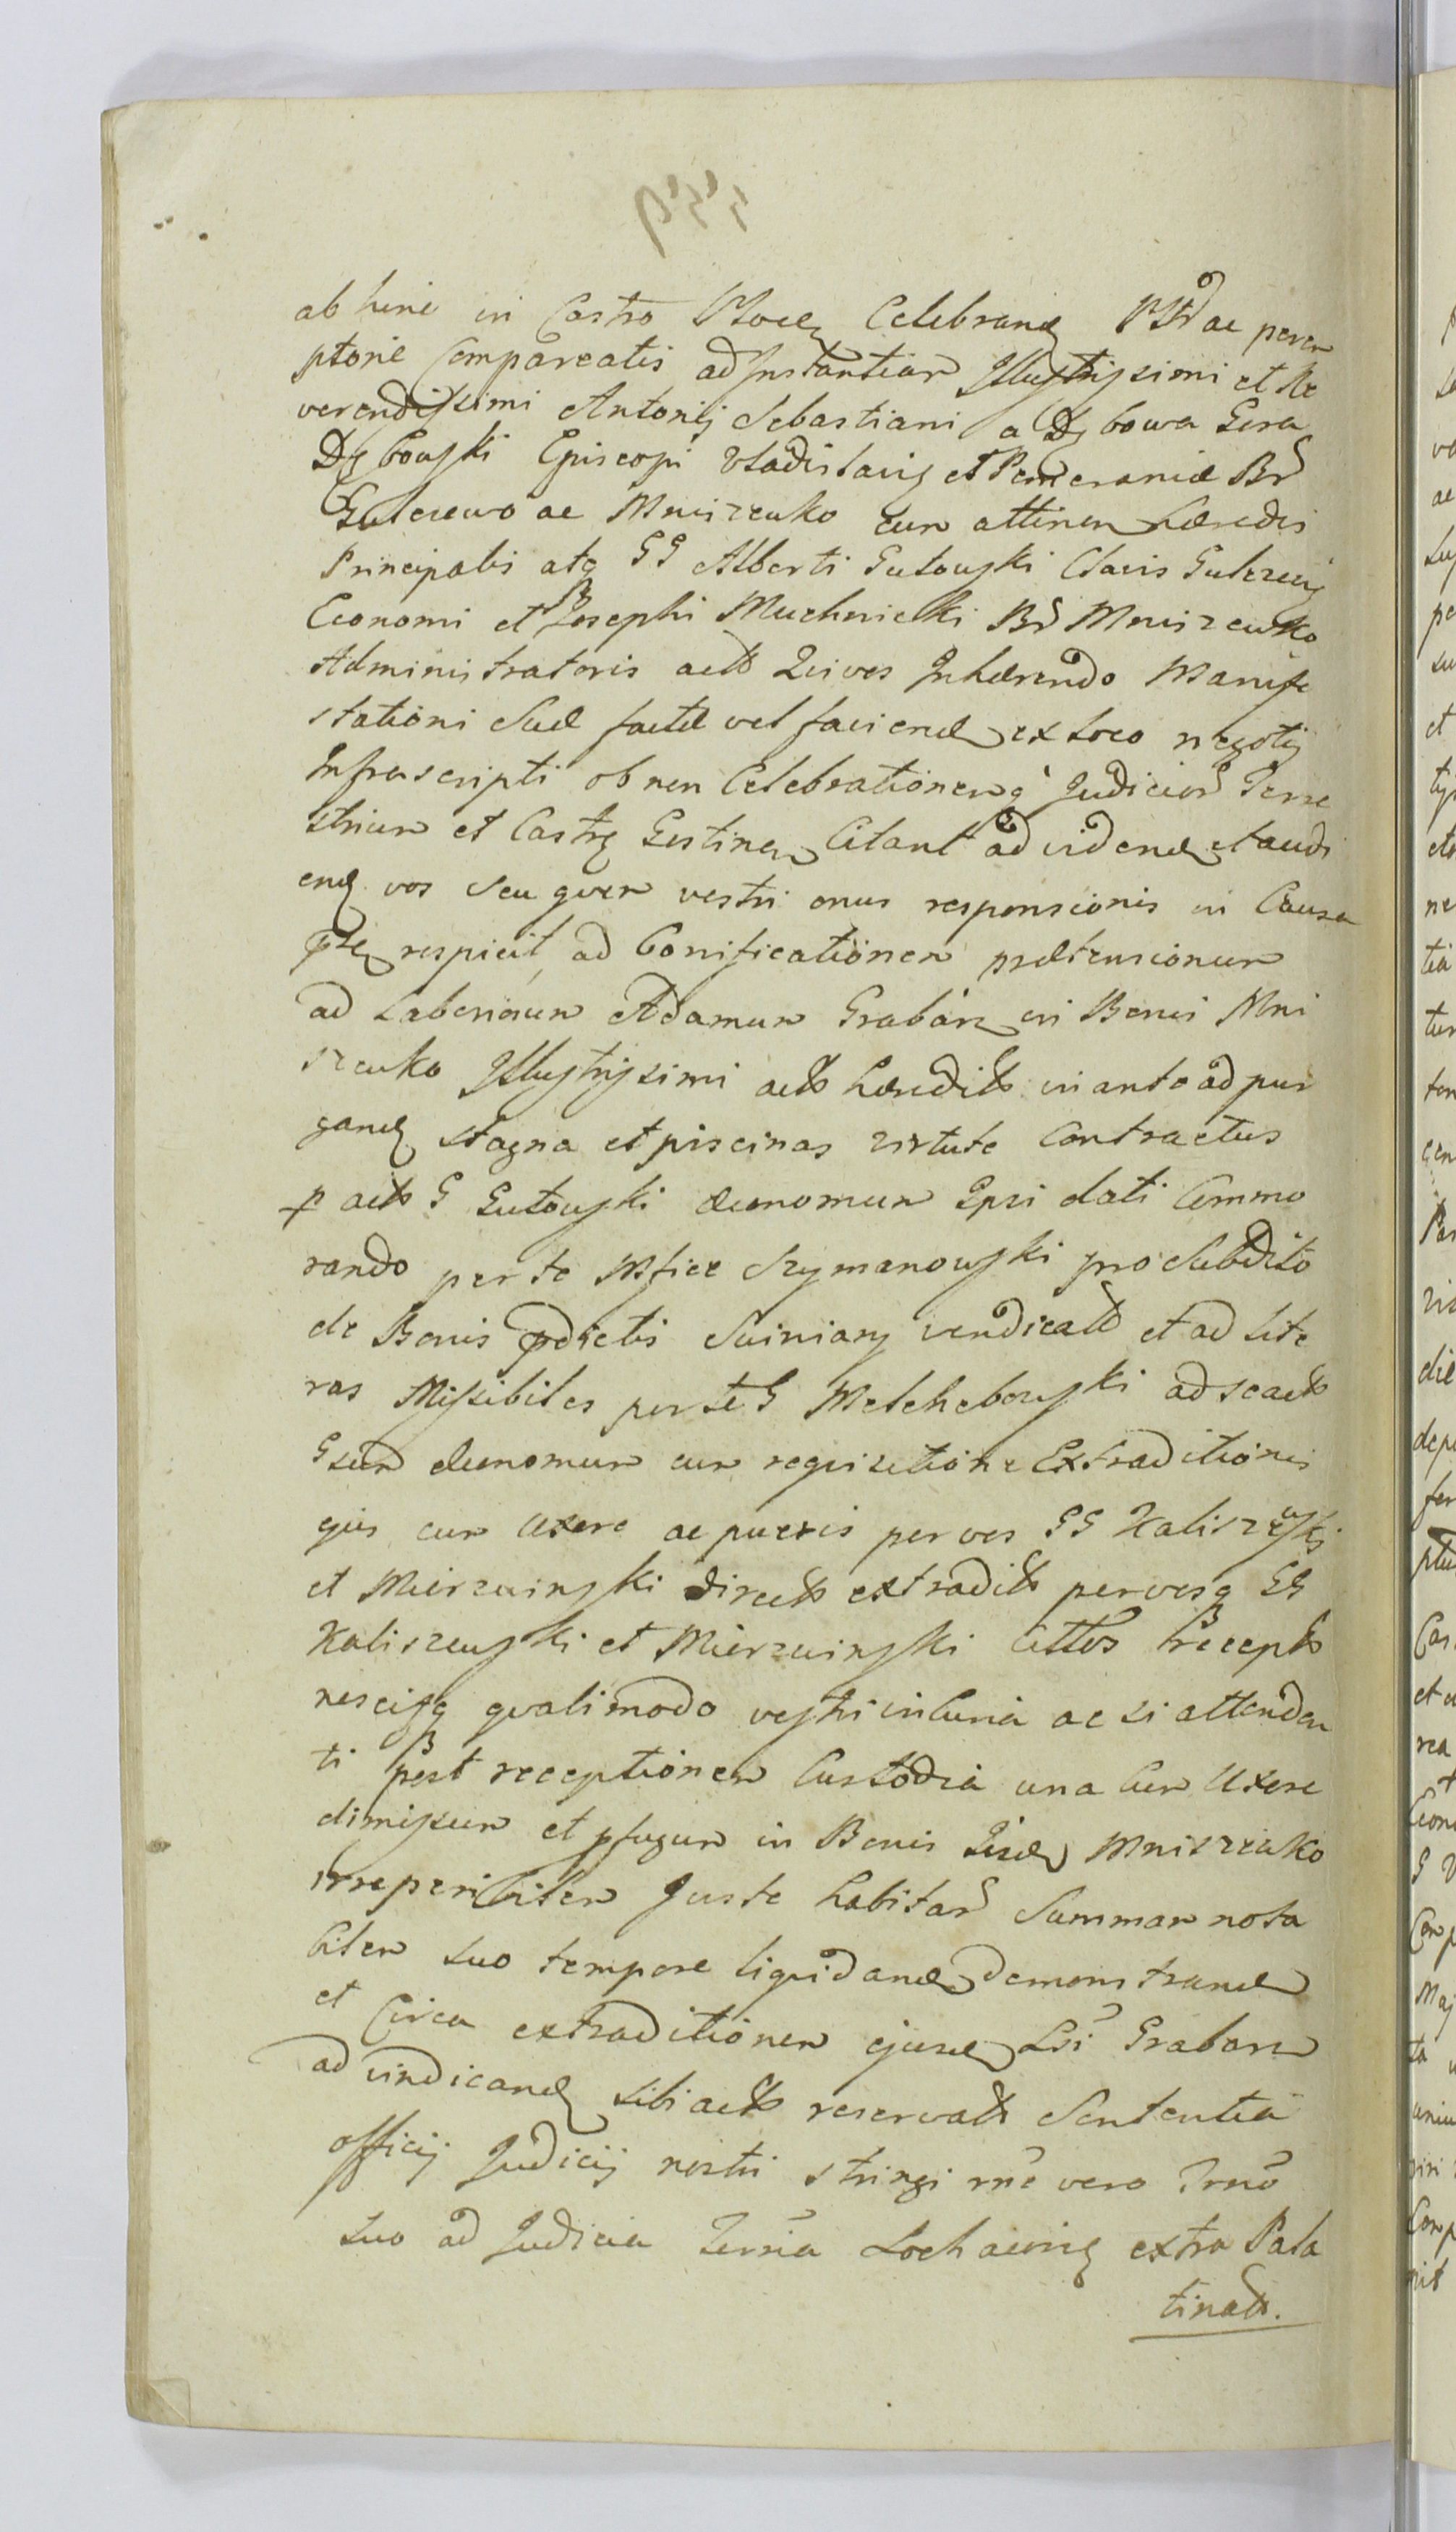 ab hinc in Castro Plocen Celebrand Pltr ac perem
ptorie Compareatis ad Instantiam Illustrissimi et Re
verendissimi Antonij Sebastiani a Dębowa Gora
Dębowski Episcopi Vladislavien et Pomeraniæ Br
Gulczewo ac Mniszewko cum attinen hæredis
Principalis atq GG Alberti Gutowski Clavis Gulczewien
Economi et Josephi Muchnicki Br Mniszewko
Administratoris act Qui vos Inhærendo Manife
stationi Suæ factæ vel faciend ex loco negotij
Infrascripti ob non Celebrationem q Judicior Terre
strium et Castr Gostinen Citant ad vidend et audi
end vos seu quem vestri onus responsionis in Causa
pte respicit, ad Bonificationem prætensionum
ad Laboriosum Adamum Grabarz in Bonis Mni
szewko Illustrissimi act hæredit in anto ad pur
gand stagna et piscinas virtute Contractus
p act G Gutowski Œconomum Ipsi dati Commo
rando per te Mfice Szymanowski pro Subdito
de Bonis pdictis Swiniary vendicat et ad Lite
ras Missibiles per te G Melchebowski ad
Gsum Œconomum cum requisitione Extraditionis
ejus cum Uxore ac pueris per vos GG Kaliszewski
et Mierzwinski direct extradit per vosq GG
Kaliszewski et Mierzwinski Cittos Recept
nescisq qualimodo vestri incuria ac si attenden
ti post receptionem Custodia una Cum Uxore
dimissum et pfugum in Bonis Mniszewko
irreperibilem Juste habitar Summam nota
bilem suo tempore liquidand demonstrand
et Circa extraditionem ejusd Lsi Grabarz
ad vindicand sibi act reservat Sententia
officij Judicij nostri stringi rne vero Trno
suo ad Judicia Terria Sochacien extra Pala
tinat.